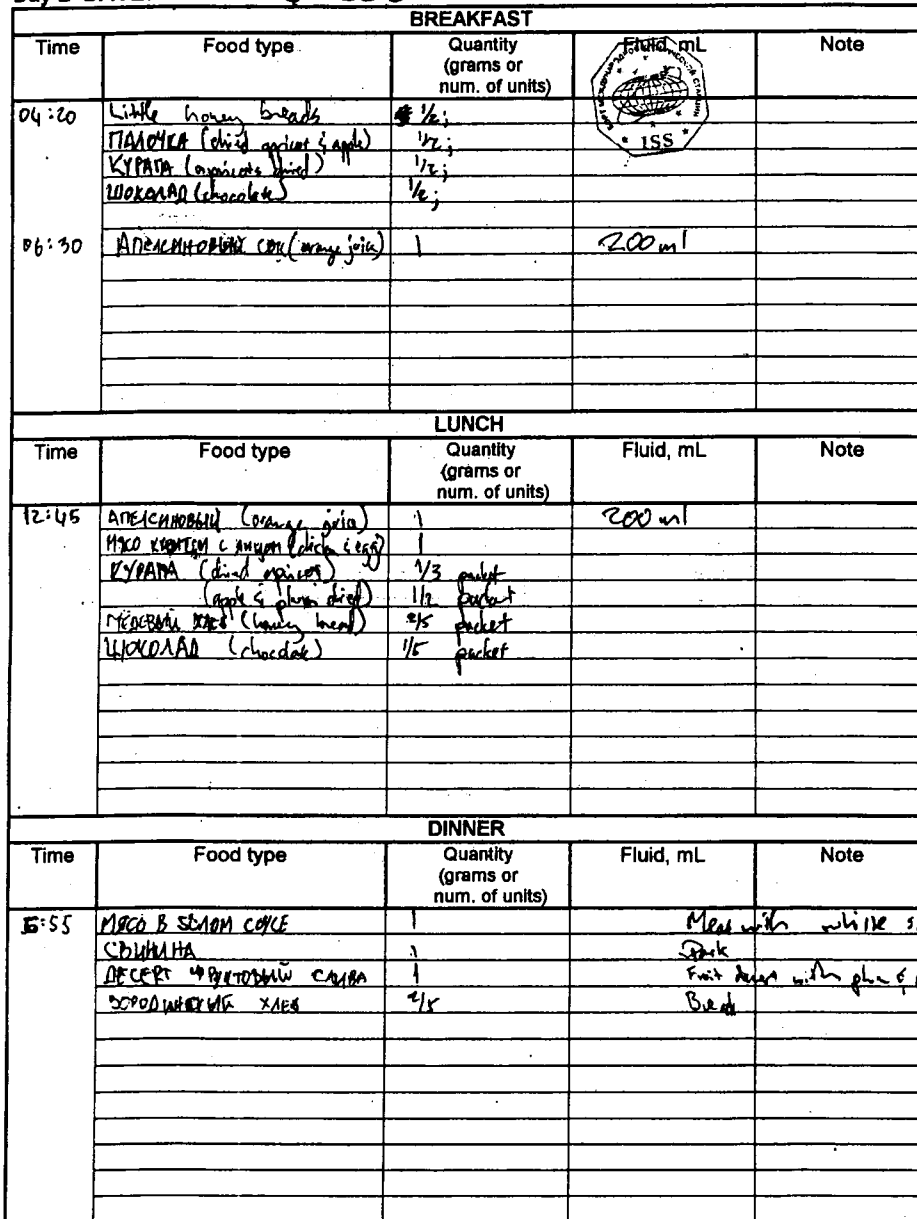 BREAKFAST
Time Food type Quantity (grams or num. of units) Fluid, mL Note
ISS
04:20 Little honey breads 1/2;
ПАЛОЧКА (dried apricot & apple) 1/2;
КУРАГА (apricots dried) 1/2;
ШОКОЛАД (chocolate) 1/2;
06:30 АПЕЛЬСИНОВЫЙ СОК (orange juice) 1 200 ml
LUNCH
Time Food type Quantity (grams or num. of units) Fluid, mL Note
12:45 АПЕЛСИНОВЫЙ (orange juice) 1 200 ml
МЯСО С ЯЙЦОМ & egg) 1
КУРАГА (dried apricot) 1/3 packet
(apple & plum dried) 1/2 packet
ХЛЕБ (honey bread) 2/5 packet
ШОКОЛАД (chocolate) 1/5 packet
DINNER
Time Food type Quantity (grams or num. of units) Fluid, mL Note
:55 МЯСО В БЕЛОМ СОУСЕ 1 Meat with white
СВИНИНА 1 Pork
ДЕСЕРТ ФРУКТОВЫЙ СЛИВА 1 Fruit with
ХЛЕБ 2/5 Bread